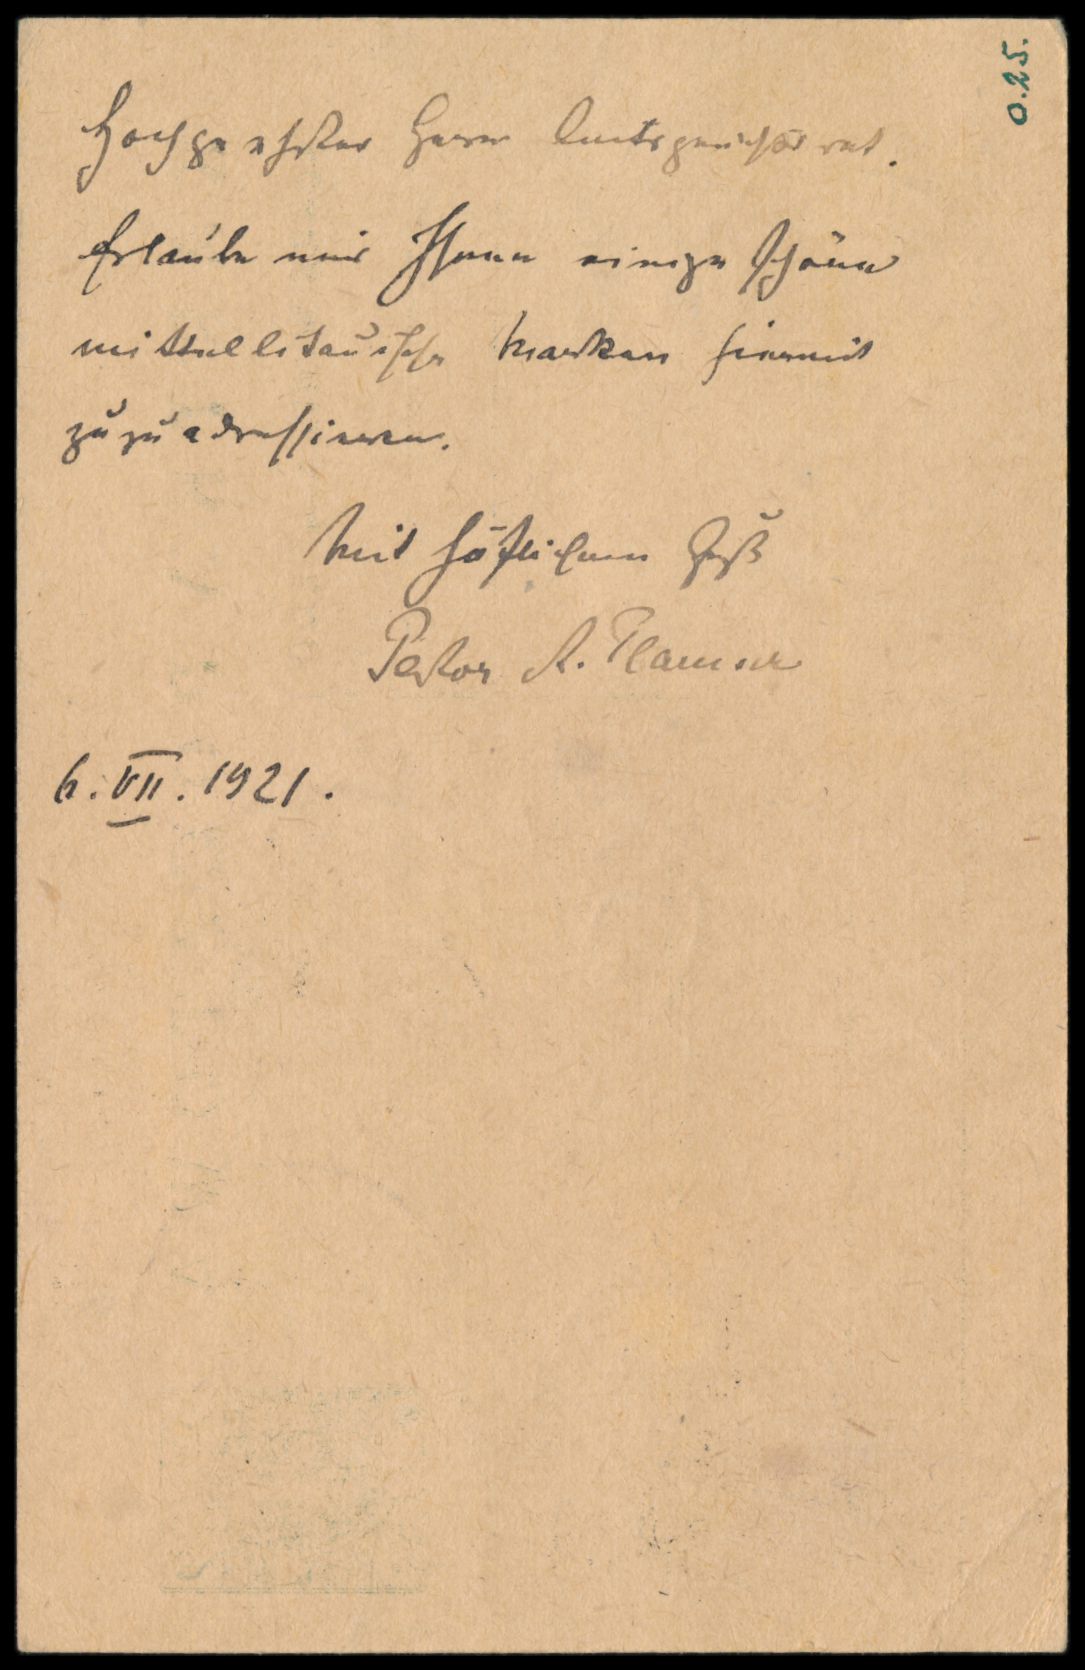 0.25.
Hochgeehrter Herr Amtsgerichtsrat.
Erlaube mir Ihnen einige schöne
mittellitauische Marken hiermit
zuzuadressieren.
Mit höflichem Gruß
Pastor A. Plamsch
6. VII. 1921.